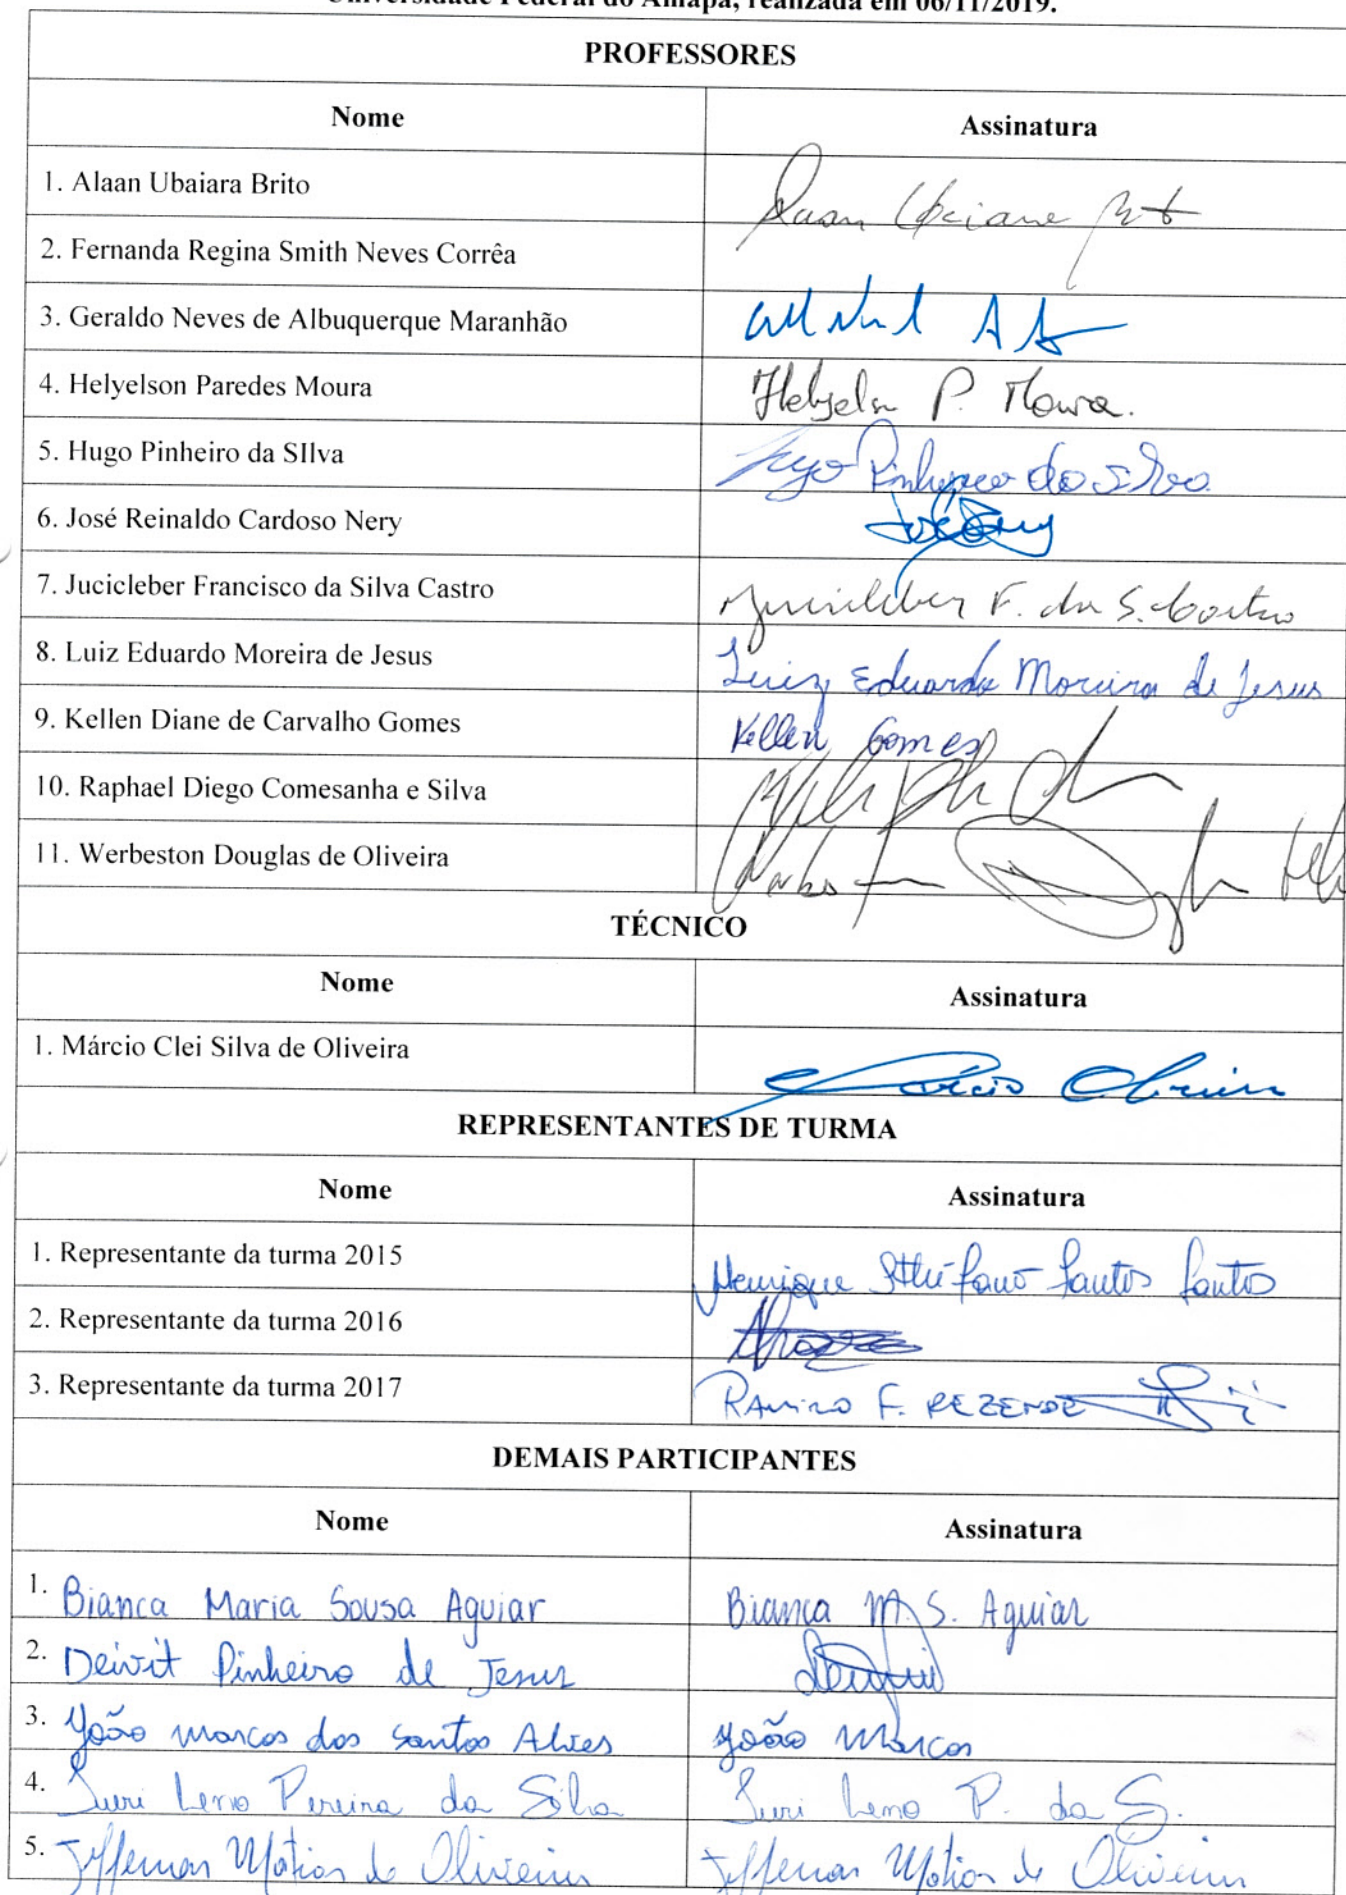 Universidade Federal do Amapá, realizada em 06/11/2019.
PROFESSORES
Nome Assinatura
1. Alaan Ubaiara Brito
2. Fernanda Regina Smith Neves Corrêa
3. Geraldo Neves de Albuquerque Maranhão
4. Helyelson Paredes Moura Helyelson P. Moura.
5. Hugo Pinheiro da SIlva Hugo Pinheiro da Silva
6. José Reinaldo Cardoso Nery
7. Jucicleber Francisco da Silva Castro Jucicleber F. da S. Castro
8. Luiz Eduardo Moreira de Jesus Luiz Eduardo Moreira de Jesus
9. Kellen Diane de Carvalho Gomes Kellen Gomes
10. Raphael Diego Comesanha e Silva
11. Werbeston Douglas de Oliveira
TÉCNICO
Nome Assinatura
1. Márcio Clei Silva de Oliveira Márcio Oliveira
REPRESENTANTES DE TURMA
Nome Assinatura
1. Representante da turma 2015 Henrique Santos Santos
2. Representante da turma 2016
3. Representante da turma 2017 RAMIRO F. REZENDE
DEMAIS PARTICIPANTES
Nome Assinatura
1. Bianca Maria Sousa Aguiar Bianca M. S. Aguiar
2. Deivit Pinheiro de Jesus
3. João Marcos dos Santos Alves João Marcos
4. Iuri Leno Pereira da Silva Iuri Leno P. da S.
5. Jefferson Matias de Oliveira Jefferson Matias de Oliveira